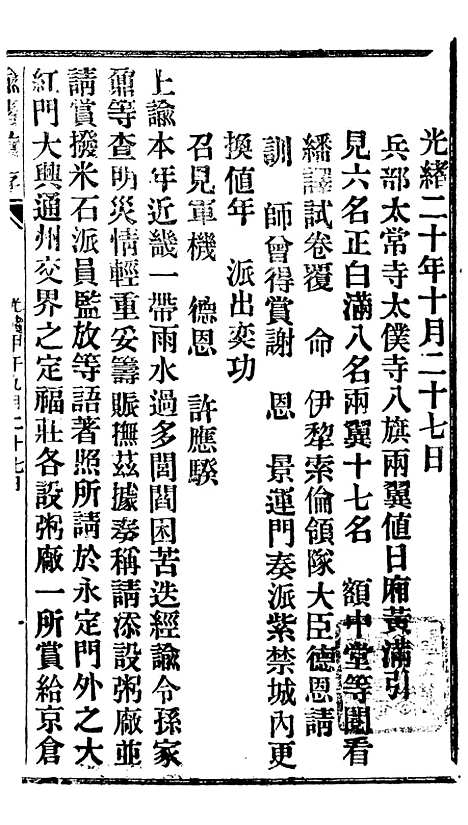 光緒二十年十月二十七日
兵部太常寺太僕寺八旗兩翼值日廂黃滿引
見六名正白滿八名兩翼十七名　額中堂等閱看
繙譯試卷覆　命　伊犂索倫領隊大臣德恩請
訓　師曾得賞謝　恩　景運門奏派紫禁城內更
換值年　派出奕功
召見軍機　德恩　許應騤
上諭本年近畿一帶雨水過多閭閻困苦迭經諭令孫家
鼐等查明災情輕重妥籌賑撫茲據奏稱請添設粥廠並
請賞撥米石派員監放等語著照所請於永定門外之大
紅門大興通州交界之定福莊各設粥廠一所賞給京倉
諭摺彙存
光緒甲午九月二十七日